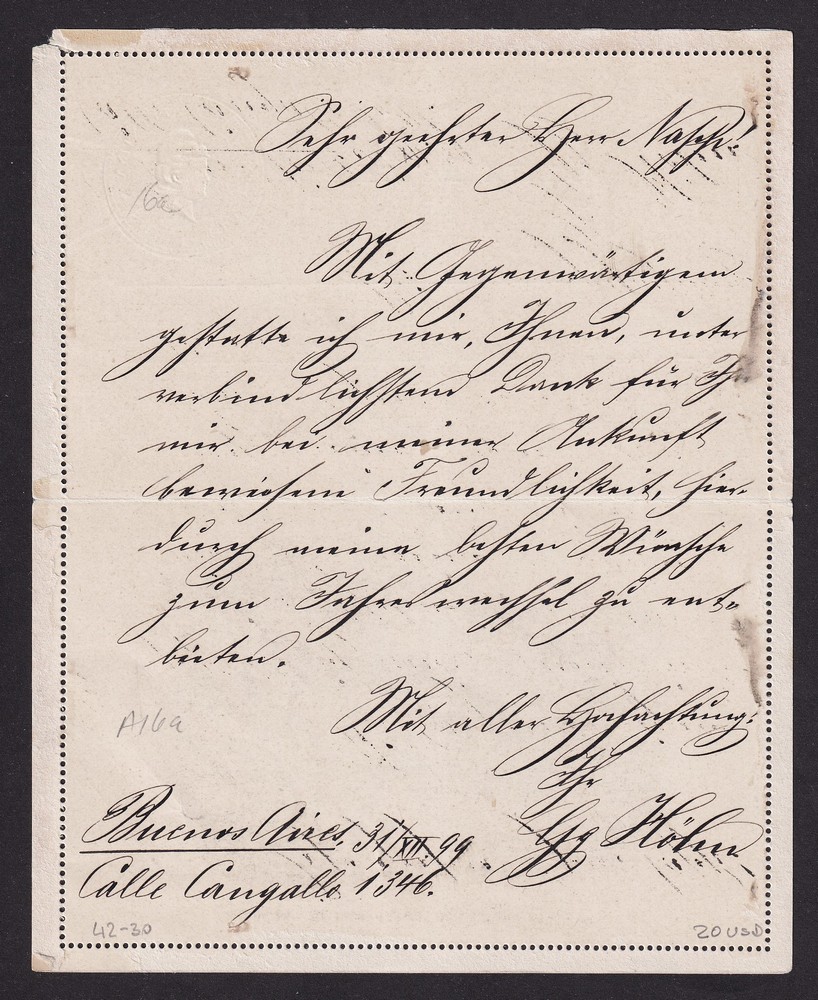 Sehr geehrter Herr
16a
Mit Gegenwärtigem
gestatte ich mir, Ihnen, unter
verbindlichstem Dank für Ih
mir bei meiner Ankunft
bewiesene Freundlichkeit, hier-
durch meine besten Wünsche
zum Jahreswechsel zu ent-
bieten.
A16a
Mit aller Hochachtung:
Ihr
Buenos Aires, 31/XII 99
Calle Cangallo 1346.
42-30
20 USD